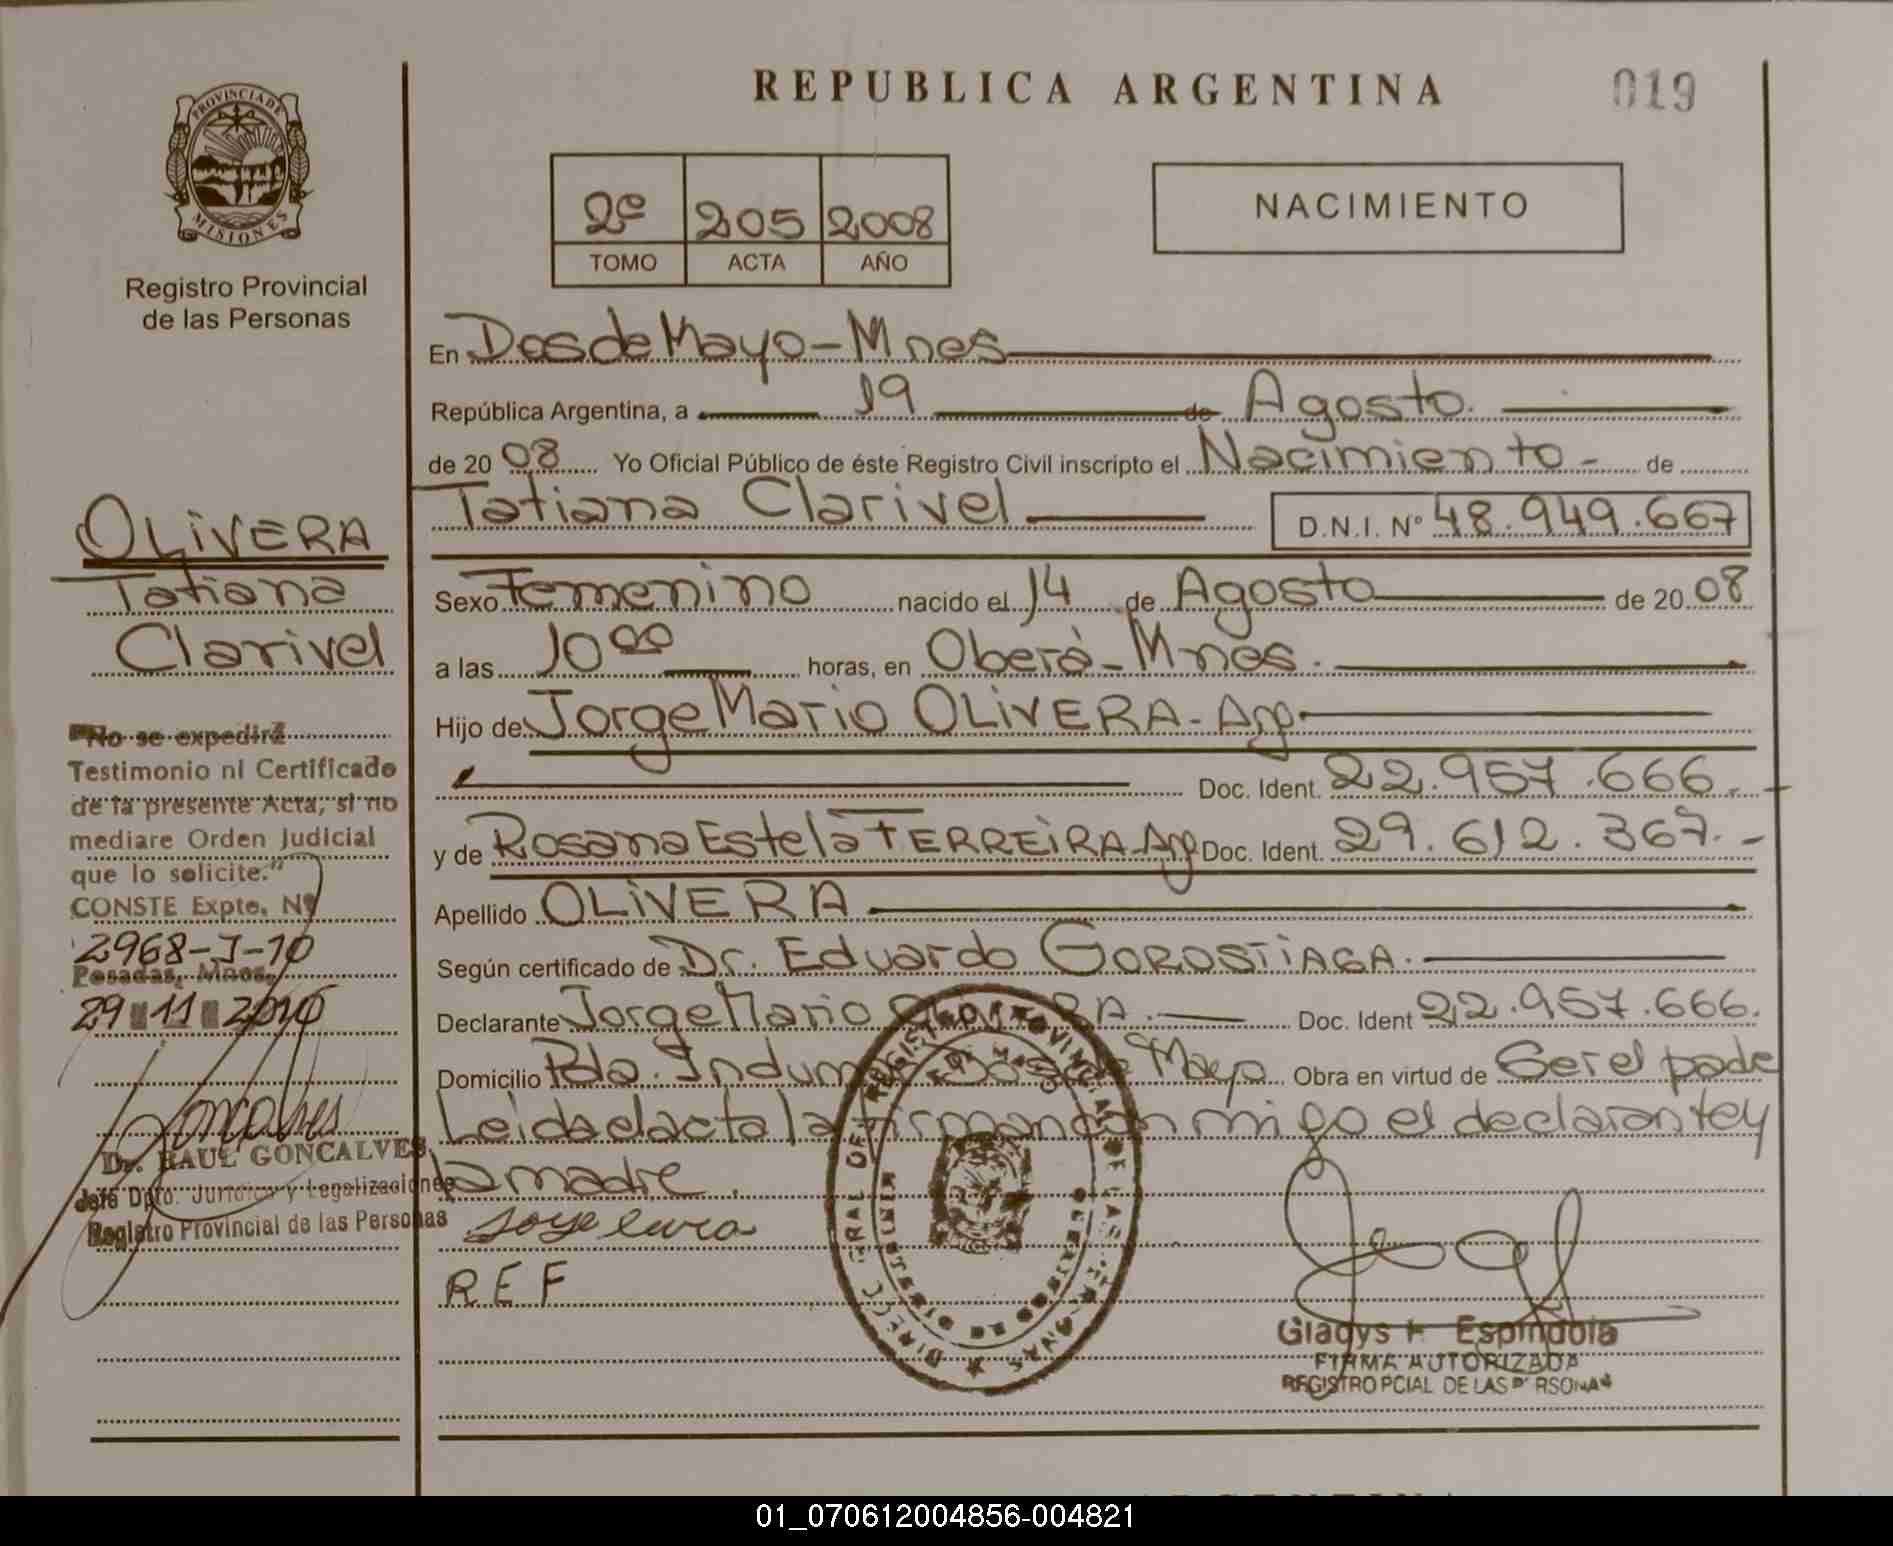 REPUBLICA ARGENTINA
019
PROVINCIA DE
MISIONES
Registro Provincial
de las Personas
2º 205 2008
TOMO ACTA AÑO
NACIMIENTO
En Dos de Mayo - Mnes
República Argentina, a 19 de Agosto.
de 20 08 Yo Oficial Público de éste Registro Civil inscripto el Nacimiento - de
Tatiana Clarivel D.N.I. Nº 48.949.667
Sexo Femenino nacido el 14 de Agosto de 20 08
a las 10 00 horas, en Oberá - Mnes.
Hijo de Jorge Mario OLIVERA - Arg
Doc. Ident. 22.957.666.-
y de Rosana Estela FERREIRA - Arg Doc. Ident. 29.612.367.-
Apellido OLIVERA
Según certificado de Dr. Eduardo GOROSTIAGA.
Declarante Jorge Mario OLIVERA.- Doc. Ident 22.957.666.
Domicilio Pda. Indum Dos de Mayo Obra en virtud de Ser el padre
Leida el acta la firman con migo el declarante y
la madre.
R E F
Gladys H Espindola
FIRMA AUTORIZADA
REGISTRO PCIAL DE LAS PERSONAS
OLIVERA
Tatiana
Clarivel
"No se expedirá
Testimonio ni Certificado
de la presente Acta, si no
mediare Orden Judicial
que lo solicite."
CONSTE Expte. Nº
2968-J-10
Posadas, Mnes.
29 11 2010
Goncalves
Dr. RAUL GONCALVES
Jefe Dpto. Jurídico y Legalizaciones
Registro Provincial de las Personas
01_070612004856-004821